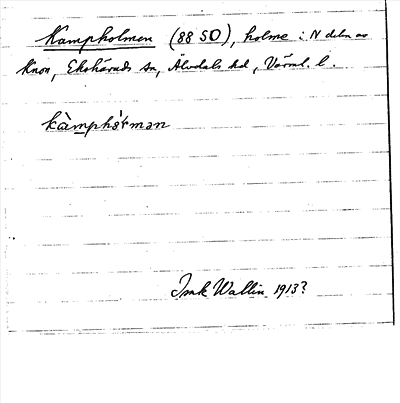 Kampholmen (88 SO), holme i N delen av
Knon, Ekshärads sn, Älvdals hd, Värml. l.
kàmphɔ̀ɫmən
Isak Wallin 1913?